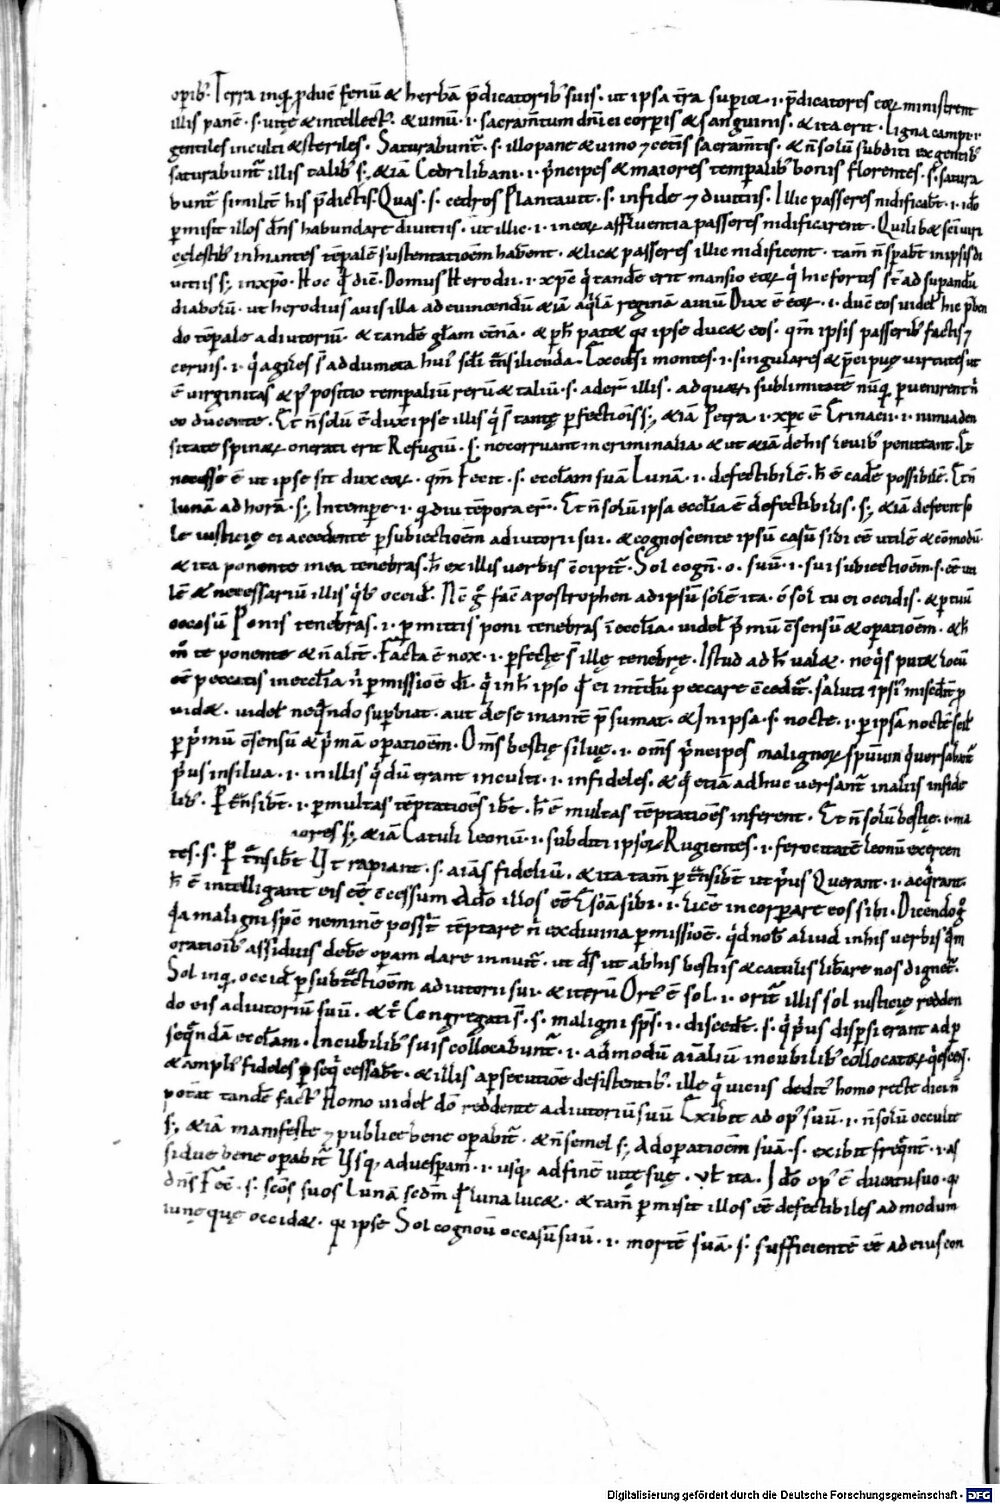 opib᷒. Terra inq̣. ꝓducē fenū & herbā p̄dicatorib᷒ suis. ut ipsa t̄ra superior .i. p̄dicatores eoꝝ ministrent
illis panē .s. uitę & intellect᷒. & uinū .i. sacram̄tum dn̄ici corporis & sanguinis. & ita erit. Ligna campi .i.
gentiles inculti & steriles. Saturabunt᷑ .s. illo pane & uino ⁊ cet̄is sacram̄tis. & n̄ solū subditi ex gentib᷒
saturabunt᷑ illis talib᷒ s; & iā Cedri libani .i. p̄ncipes & maiores temporalib᷒ bonis florentes .s. satura
bunt᷑ similit̄ his p̄dictis. Quas .s. cedros Plantauit .s. in fide ⁊ diuitiis. Illic passeres nidificab̄t .i. ido
permisit illos dn̄s habundare diuitiis. ut illic .i. in eoꝝ affluentia passeres nidificarent. Qui lib& sc̄i uiri
cęlestib᷒ inhiantes tēpalē sustentationē haben̄t. & lic& passeres illic nidificent. tam̄ n̄ spab̄t in ipsis di
uitiis s; in xp̄o. Hoc q̄ diē. Domus Herodii .i. xp̄c q̄ tandē erit mansio eoꝝ q̄ hic fortes s̄t ad supandū
diabolū. ut herodius auis illa ad euincendū & iā aq̄lā reginā auiū Dux ē eoꝝ .i. ducē eos uidel᷒ hic p̄ben
do tēpale adiutoriū. & tandē gl̄am et̄nā. & p̄ h̄ pat& q̇ ipse duc& eos. qm̄ ipsis passerib᷒ factis ⁊
ceruis .i. q̇ agiles s̄t ad dumeta hui᷒ sc̄li t̄nsilienda. Excelsi montes .i. singulares & p̄cipuę uirtutes ut
ē virginitas & p᷒positio temporaliū rerū & taliū .s. ader̄ illis. ad quaꝝ sublimitatē nūq̄ puenirent n̄
eo ducente. Et n̄ solū ē dux ipse illis q̇ s̄t tantę pfectiois s; & iā Petra .i. xp̄c ē Erinacii .i. nimia den
sitate spinaꝝ onerati erit Refugiū .s. ne corruant in criminalia & ut & iā de his leuib᷒ peniteant. Et
necesse ē ut ipse sit dux eoꝝ. qm̄ Fecit .s. eccl̄am suā Lunā .i. defectibilē. h̄ ē cadē possibilē. Et n̄
lunā ad horā .s; In tempore .i. q̄diu tēpora er̄. Et n̄ solū ipsa eccl̄ia ē defectibilis .s; & iā deficit so
le iusticię ei accedente p subiectionē adiutorii sui. & cognoscente ipsū casū sibi ēē utilē & cōmodū
& ita ponente in ea tenebras. h̄ ex illis uerbis ēcipit᷑. Sol cogn̄ .o. suū .i. sui subiectionē .s. ēē uti
lē & necessariū illis q̇b᷒ occid᷒. Nc̄ ḡ fac̄ apostrophen ad ipsū solē ita. ó sol tu ei occidis. & p tuū
occasū Ponis tenebras .i. pmittis poni tenebras ī eccl̄ia. uidel᷒ p̄mū c̄sensū & opationē. & h̄
n̄ te ponente & n̄ alit̄. Facta ē nox .i. pfectę s̄t illę tenebrę. Istud ad h̄ ual&. ne q̇s put& locū
ēē peccatis in eccl̄ia n̄ pmissionē di᷒. q̇ in h̄ ipso q̄ ei int̄dū peccare c̄cedit᷑. saluti ipsi᷒ misedit̄ p
uid&. uidel᷒ ne q̄ndo supbiat. aut de se inanit̄ p̄sumat. & In ipsa .s. nocte .i. p ipsā noctē scil᷒
p p̄mū c̄sensū & p̄mā opationē. Om̄s bestię siluę .i. om̄s p̄ncipes malignoꝝ spūum q̇ uersabant᷑
p̄us in silua .i. in illis q̇ dū erant inculti .i. infideles. & q̄ etiā adhuc uersant᷑ in aliis infide
lib᷒. Pt̄nsib̄t .i. p multas tēptationes ib̄t. h̄ ē multas tēptationes inferent. Et n̄ solū bestię .i. ma
iores s; & iā Catuli leonū .i. subditi ipsoꝝ Rugientes .i. ferocitatē leonū exercen
tes .s. Pt̄nsib̄t Ut rapiant .s. aīas fideliū. & ita tam̄ pt̄nsib̄t ut p̄us Querant .i. acq̄rant.
h̄ ē intelligant eis ēē c̄cessum A do illos ēē Escā sibi .i. licē incorporare eos sibi. Dicendo ḡ
q̇a maligni sp̄c neminē poss̄t tēptare n̄ ex diuina pmissione. q̇d nob᷒ aliud in his uerbis q̄m
orationib᷒ assiduis debē opam dare innuit᷑. ut ds̄ ut ab his bestiis & catulis lib̄are nos dignet᷑.
Sol inq̣. occid᷒ p subt̄ctionē adiutorii sui. & iterū Ort᷒ ē sol .i. orit᷑ illis sol iusticię redden
do eis adiutoriū suū. & t̄ Congregati s̄ .s. maligni sp̄s .i. disced̄t .s. q̇ p̄us dispsi erant ad p
seq̄ndā eccl̄am. In cubilib᷒ suis collocabunt᷑ .i. ad modū aīaliū in cubilib᷒ collocatoꝝ q̇escen᷒.
& ampli᷒ fideles pseq̇ cessab̄t. & illis a psecutione desistentib᷒. ille q̇ uiciis dedit᷒ homo recte dici n̄
potat tandē fact᷒ Homo uidel᷒ do᷒ reddente adiutoriū suū Exibit ad op᷒ suū .i. n̄ solū occulte
s; & iā manifeste ⁊ publice bene opabit᷑. & n̄ semel s; Ad opationē suā .s. exibit freq̄nt̄ .i. as
sidue bene opabit᷑ Usq; ad uesperam .i. usq; ad finē uitę suę. Vl᷒ ita. Ido op᷒ ē ducatu suo. q̇
dn̄s Fec̄ .s. sc̄os suos Lunā scdm̄ q̄ luna luc&. & tam̄ pmisit illos ēē defectibiles ad modum
lunę quę occid&. q̇ ipse Sol cognou᷒ occasū suū .i. mortē suā .s. sufficientē ēē ad eius con
Digitalisierung gefördert durch die Deutsche Forschungsgemeinschaft - DFG